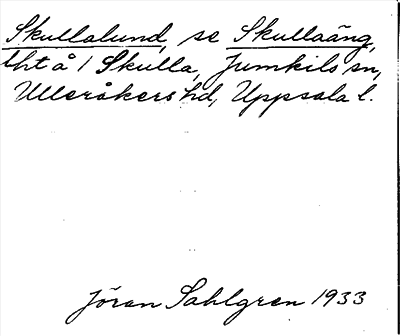 Skullalund, se Skullaäng,
lht å 1 Skulla, Jumkils sn,
Ulleråkers hd, Uppsala l.
Jöran Sahlgren 1933